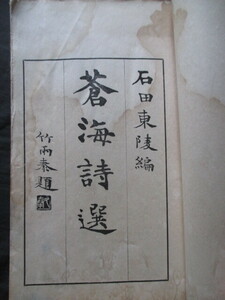 石田東陵編
蒼海詩選
竹雨泰題